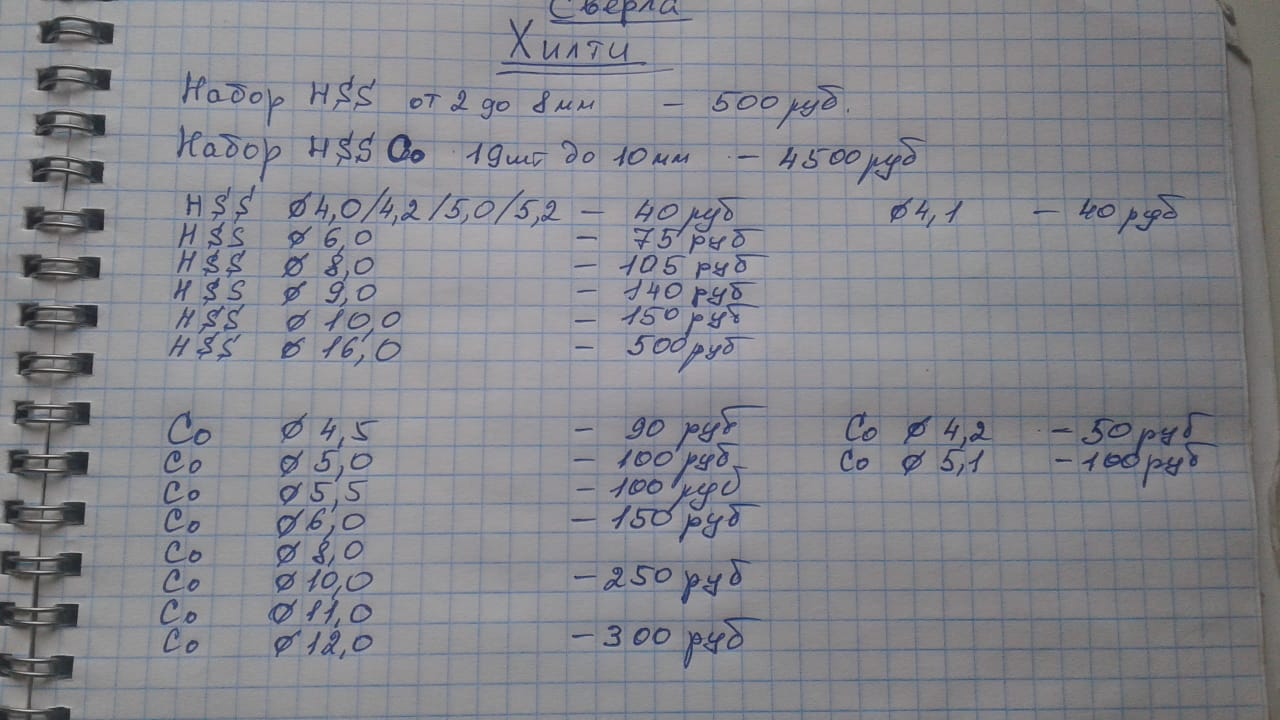 Сверла
Хилти
Набор HSS от 2 до 8мм – 500 руб.
Набор HSS Co 19шт до 10мм – 4500 руб
HSS Ø4,0/4,2/5,0/5,2 – 40 руб Ø4,1 – 40 руб
HSS Ø 6,0 – 75 руб
HSS Ø 8,0 – 105 руб
HSS Ø 9,0 – 140 руб
HSS Ø 10,0 – 150 руб
HSS Ø 16,0 – 500 руб
Co Ø 4,5 – 90 руб Co Ø 4,2 – 50 руб
Co Ø 5,0 – 100 руб Co Ø 5,1 – 100 руб
Co Ø 5,5 – 100 руб
Co Ø 6,0 – 150 руб
Co Ø 8,0
Co Ø 10,0 – 250 руб
Co Ø 11,0
Co Ø 12,0 – 300 руб